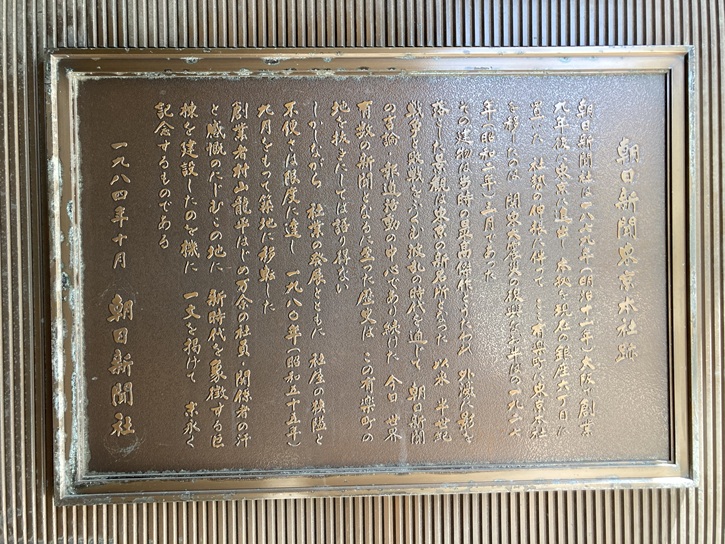 朝日新聞東京本社跡
朝日新聞社は一八七九年(明治十二年)大阪で創業
九年後に東京に進出し 本拠を現在の銀座六丁目に
置いた 社勢の伸張に伴って ここ有楽町に東京本社
を移したのは 関東大震災の復興なお半ばの一九二七
年(昭和二年)三月であった
その建物は当時の最高傑作とうたわれ 外濠に影を
落した景観は東京の新名所となった 以来 半世紀
戦争と敗戦をはさむ波乱の時代を通じて 朝日新聞
の言論・報道活動の中心であり続けた 今日 世界
有数の新聞となるに至った歴史は この有楽町の
地を抜きにしては語り得ない
しかしながら 社業の発展とともに 社屋の狭隘と
不便さは限度に達し 一九八〇年(昭和五十五年)
九月をもって築地に移転した
創業者村山龍平はじめ万余の社員 関係者の汗
と職慨のにじむこの地に 新時代を象徴する巨
棟を建設したのを機に 一文を掲げて 末永く
記念するものである
一九八四年十月 朝日新聞社